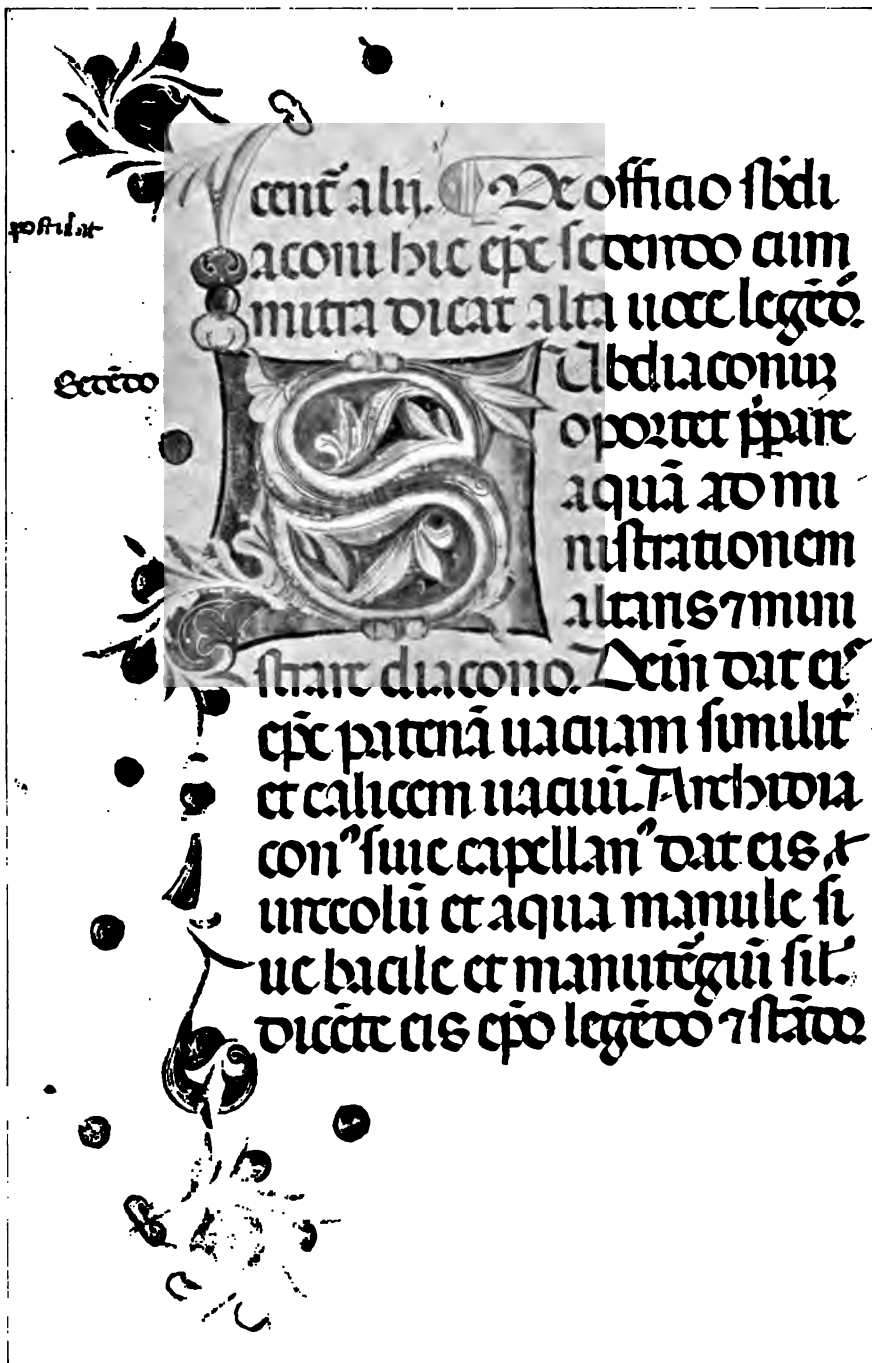 postulat
Sedēdo
cent̄ alii. ¶ De officio sb̄di
aconi hic ep̄c sedendo cum
mitra dicat alta uoce legēdo.
SUbdiaconuꝫ
oportet p̄parare
aquā ad mi
nistrationem
altaris ⁊ mini
strare diacono. Dein̄ dat eiˢ
ep̄c patenā uacuam similit̄
et calicem uacuū. Archidia
con⁹ siue capellan⁹ dat eis
urceolū et aqua manule si
ue bacile et manutēgiū sil̄.
dicēte eis ep̄o legēdo ⁊ stādo